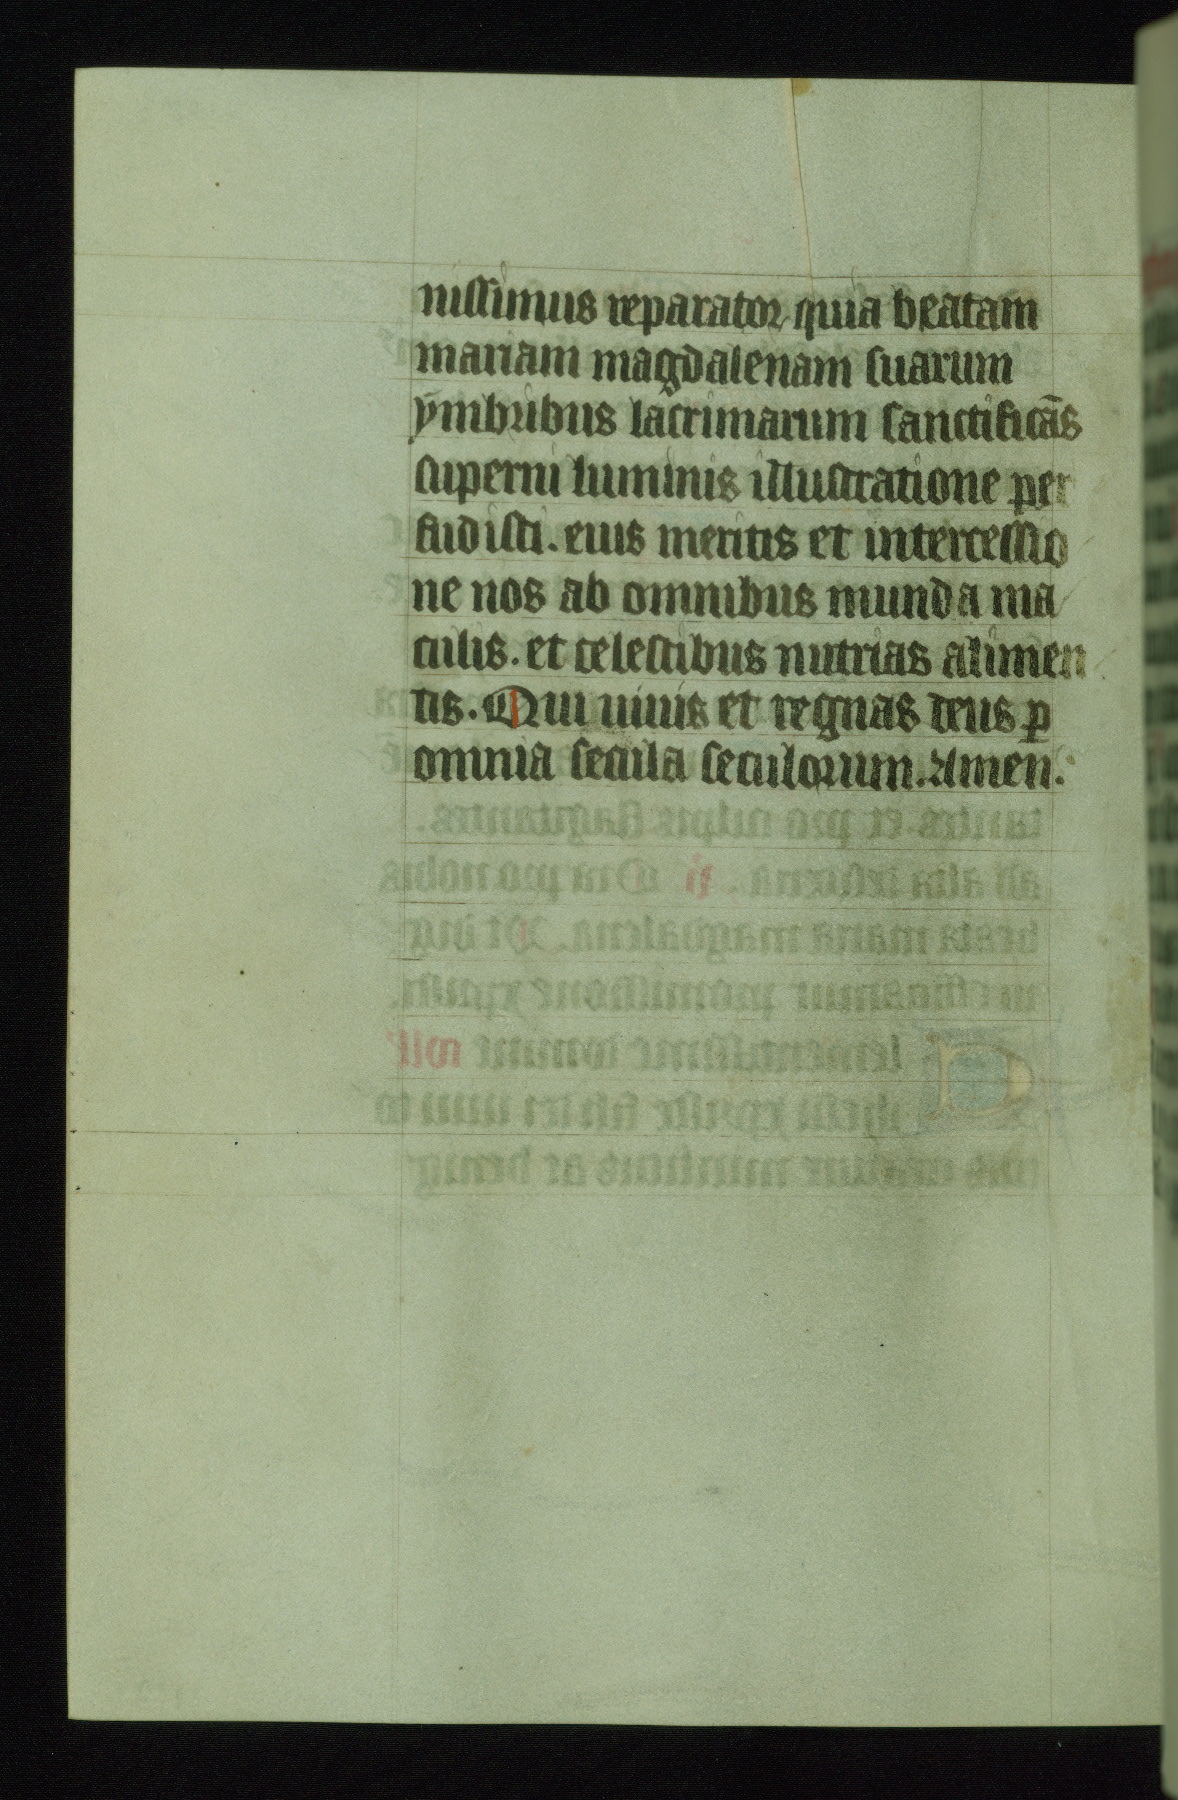 nissimus reparator quia beatam
mariam magdalenam suarum
ymbribus lacrimarum sanctificãs
superni luminis illustratione per
fudisti. eius meritis et intercessio
ne nos ab omnibus munda ma
culis. et celestibus nutrias alimen
tis. Qui uiuis et regnas deus ꝑ
omnia secula seculorum. Amen.